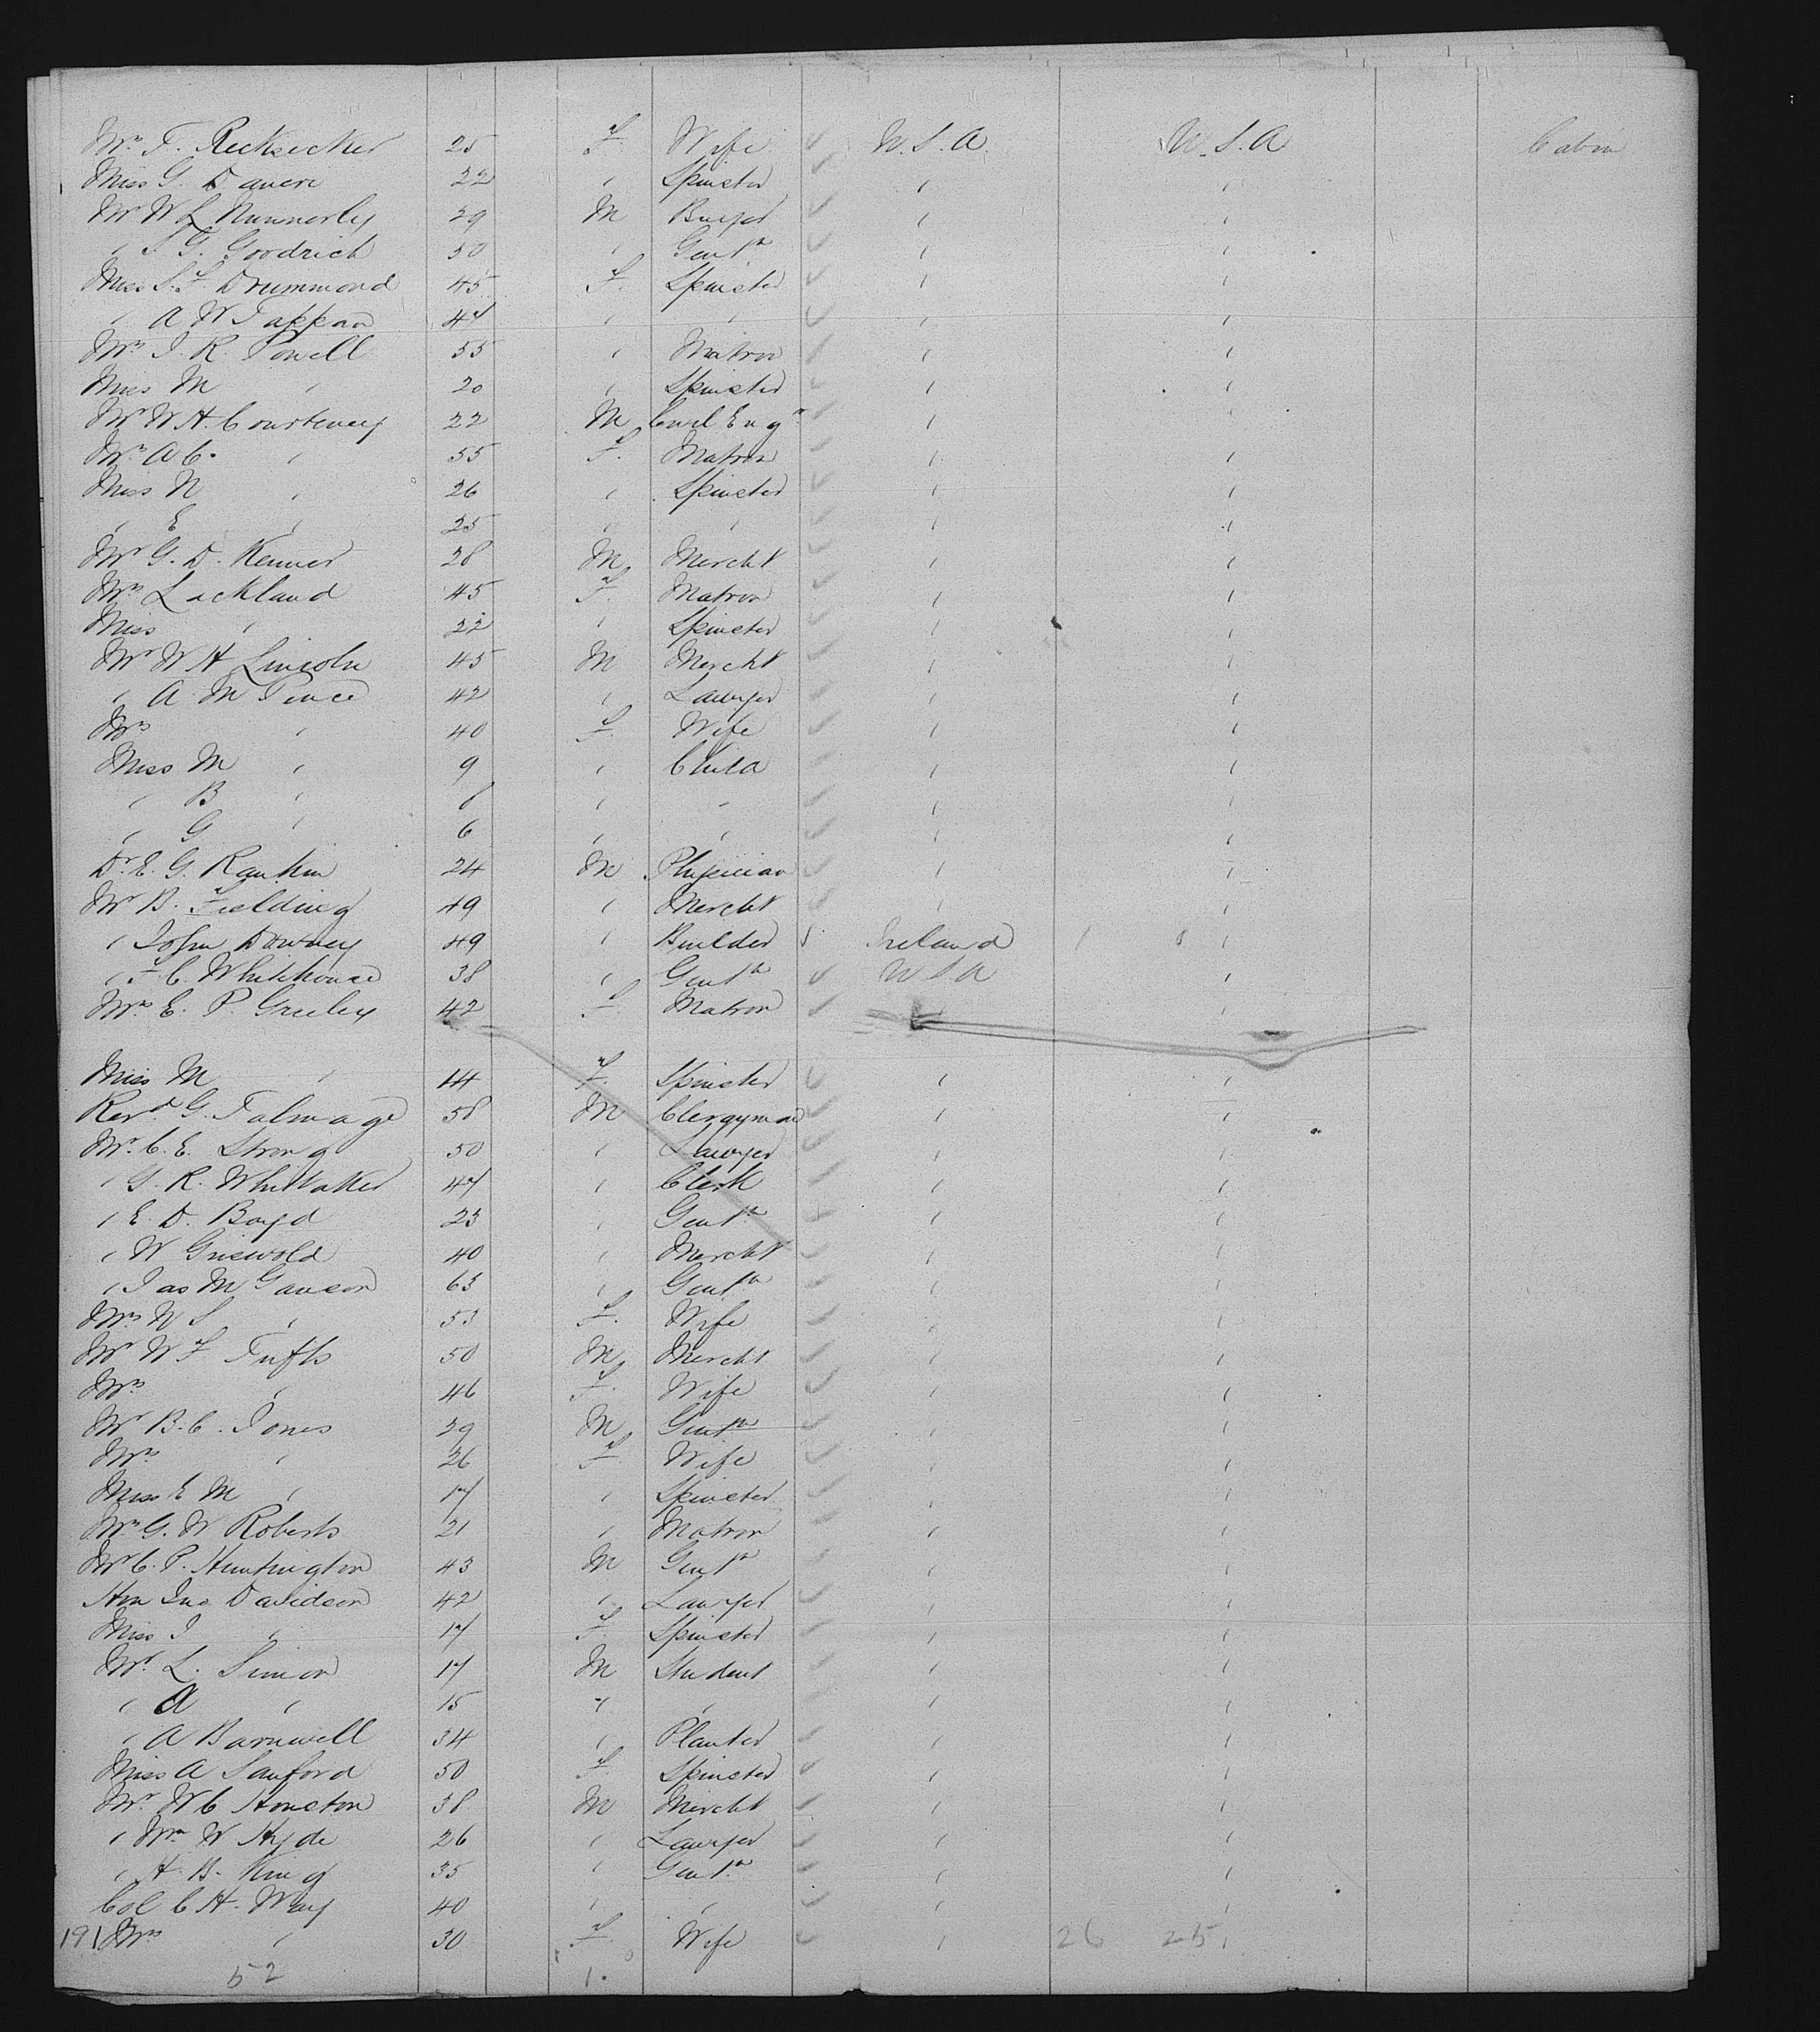 Mrs F. Recksecker 25 F. Wife U.S.A. U.S.A Cabin
Miss G. Daveri 22 " Spinster " "
Mr W L Nunnerly 29 M Buyer " "
" S G. Goodrich 50 " Gentn " "
Miss S. F. Drummond 45 F. Spinster " "
" A W Tappan 47 " " " "
Mrs J. R. Powell 55 " Matron " "
Miss M " 20 " Spinster " "
Mr W H. Courtenay 22 M Civil Engr " "
Mrs A C. " 55 F. Matron " "
Miss N " 26 " Spinster " "
" E " 25 " " " "
Mr G. D. Kenner 28 M Mercht " "
Mrs Lackland 45 F. Matron " "
Miss " 22 " Spinster " "
Mr W H Lincoln 45 M Mercht " "
" A M Pence 42 " Lawyer " "
Mrs " 40 F. Wife " "
Miss M " 9 " Child " "
" B " 8 " " " "
" G " 6 " " " "
Dr. E. G. Rankin 24 M Physician " "
Mr B. Fielding 49 " Mercht " "
" John Downey 49 " Builder Ireland "
" F C. Whitehouse 38 " Gentn U S A "
Mrs E. P. Greeley 42 F. Matron "
Miss M " 14 F. Spinster " "
Revd G. Talmage 58 M Clergyman " "
Mr. C. E. Strong 50 " Lawyer " "
" G. R. Whittaker 47 " Clerk " "
" E. D. Boyd 23 " Gentn " "
" W Griswold 40 " Mercht " "
" Jas M Ganson 63 " Gentn " "
Mrs N S " 53 F. Wife " "
Mr W F Tufts 50 M Mercht " "
Mrs " 46 F. Wife " "
Mr B. C. Jones 29 M Gentn " "
Mrs " 26 F Wife " "
Miss E M " 17 " Spinster " "
Mrs G. W Roberts 21 " Matron " "
Mr C. P. Huntington 43 M Gentn " "
Hon Jno Davidson 42 " Lawyer " "
Miss J " 17 F. Spinster " "
Mr. L. Simon 17 M Student " "
" A " 15 " " " "
" A Barnwell 34 " Planter " "
Miss A Sanford 50 F. Spinster " "
Mr. W C Houston 38 M Mercht " "
" Wm W Hyde 26 " Lawyer " "
" H. B. King 35 " Gentn " "
Col C H. Way 40 " " " "
191 Mrs " 30 F. Wife " 26 25 "
52 1.